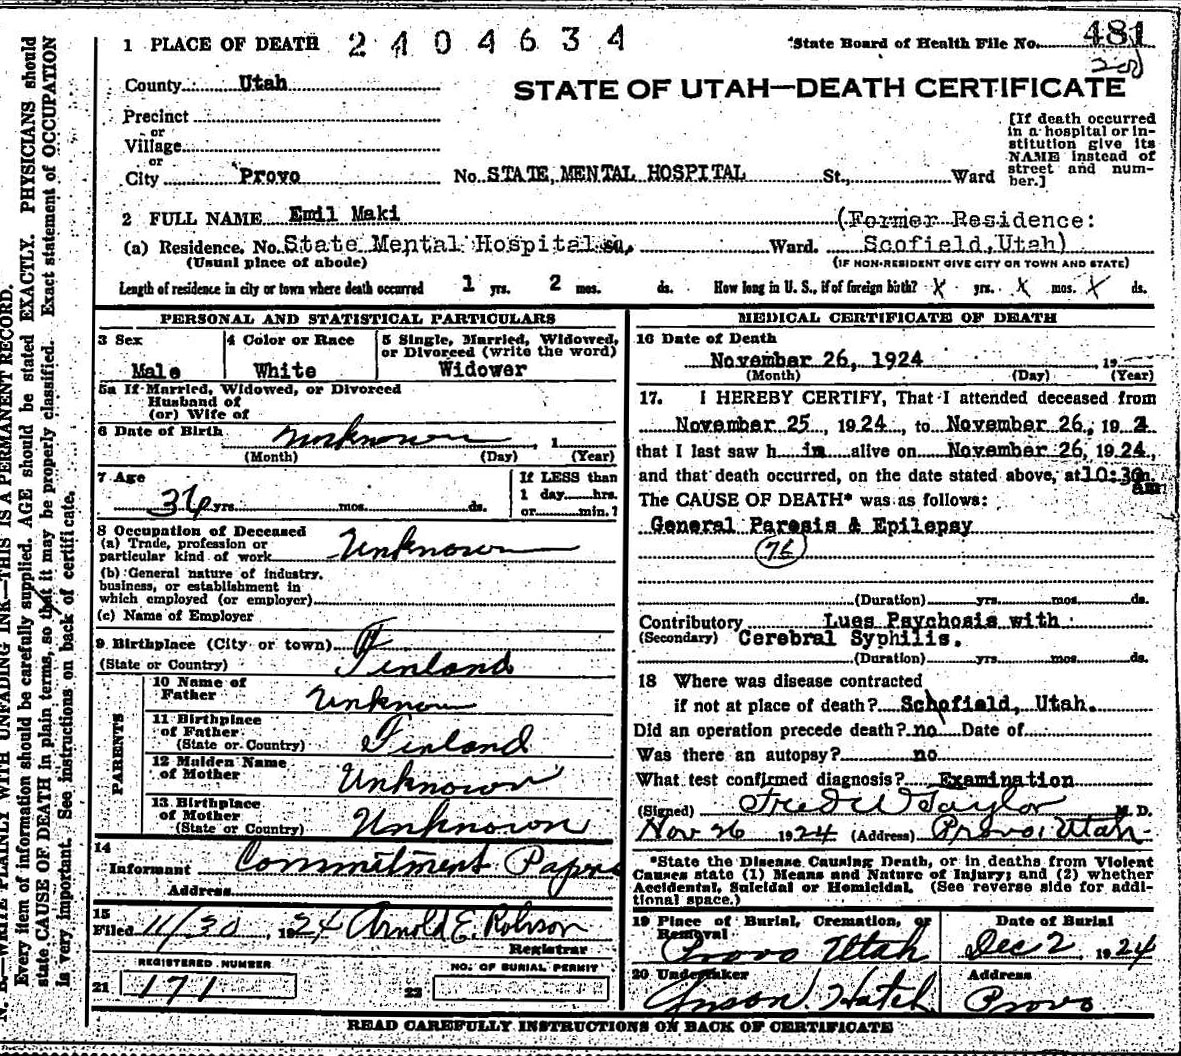 1 PLACE OF DEATH 2404634 State Board of Health File No. 481
County Utah
STATE OF UTAH—DEATH CERTIFICATE
Precinct
or
Village
or
City Provo No. STATE MENTAL HOSPITAL St., Ward
[If death occurred
in a hospital or in-
stitution give its
NAME instead of
street and num-
ber.]
2 FULL NAME Emil Maki (Former Residence:
(a) Residence. No. State Mental Hospital Ward. Scofield, Utah)
(Usual place of abode) (IF NON-RESIDENT GIVE CITY OR TOWN AND STATE)
Length of residence in city or town where death occurred 1 yrs. 2 mos. ds. How long in U. S., if of foreign birth? X yrs. X mos. X ds.
PERSONAL AND STATISTICAL PARTICULARS
3 Sex
Male
4 Color or Race
White
5 Single, Married, Widowed,
or Divorced (write the word)
Widower
5a If Married, Widowed, or Divorced
Husband of
(or) Wife of
6 Date of Birth unknown, 1
(Month) (Day) (Year)
7 Age
36 yrs. mos. ds.
If LESS than
1 day hrs.
or min.?
8 Occupation of Deceased
(a) Trade, profession or
particular kind of work Unknown
(b) General nature of industry,
business, or establishment in
which employed (or employer)
(c) Name of Employer
9 Birthplace (City or town)
(State or Country) Finland
PARENTS
10 Name of
Father Unknown
11 Birthplace
of Father
(State or Country) Finland
12 Maiden Name
of Mother Unknown
13 Birthplace
of Mother
(State or Country) Unknown
14
Informant Commitment Papers
Address
15
Filed 11/30, 1924 Arnold E. Robison
Registrar
REGISTERED NUMBER
21 171
NO. OF BURIAL PERMIT
22
MEDICAL CERTIFICATE OF DEATH
16 Date of Death
November 26, 1924, 19
(Month) (Day) (Year)
17. I HEREBY CERTIFY, That I attended deceased from
November 25, 1924, to November 26, 192
that I last saw him alive on November 26, 1924,
and that death occurred, on the date stated above, at 10:30 m.
am
The CAUSE OF DEATH* was as follows:
General Paresis & Epilepsy
(76)
(Duration) yrs. mos. ds.
Contributory Lues Psychosis with
(Secondary) Cerebral Syphilis.
(Duration) yrs. mos. ds.
18 Where was disease contracted
if not at place of death? Schofield, Utah.
Did an operation precede death? no Date of
Was there an autopsy? no
What test confirmed diagnosis? Examination
(Signed) Fred W Taylor M. D.
Nov 26 1924 (Address) Provo, Utah
*State the Disease Causing Death, or in deaths from Violent
Causes state (1) Means and Nature of Injury; and (2) whether
Accidental, Suicidal or Homicidal. (See reverse side for addi-
tional space.)
19 Place of Burial, Cremation, or
Removal
Provo Utah
Date of Burial
Dec 2, 1924
20 Undertaker
Hatch
Address
Provo
READ CAREFULLY INSTRUCTIONS ON BACK OF CERTIFICATE
N. B.—WRITE PLAINLY WITH UNFADING INK—THIS IS A PERMANENT RECORD.
Every item of information should be carefully supplied. AGE should be stated EXACTLY. PHYSICIANS should
state CAUSE OF DEATH in plain terms, so that it may be properly classified. Exact statement of OCCUPATION
is very important. See instructions on back of certificate.